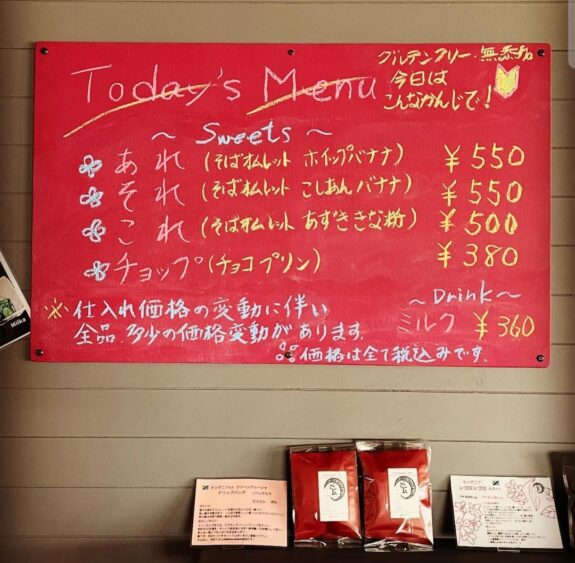 Today's Menu
グルテンフリー・無添加
今日は
こんなかんじで!
~ Sweets ~
あれ (そばオムレット ホイップバナナ) ¥550
それ (そばオムレット こしあんバナナ) ¥550
これ (そばオムレット あずききな粉) ¥500
チョップ (チョコプリン) ¥380
※ 仕入れ価格の変動に伴い
全品、多少の価格変動があります。
~Drink~
ミルク ¥360
価格は全て税込みです。
Milka
ドリップバッグ
タンザニア
ンゴロンゴロ